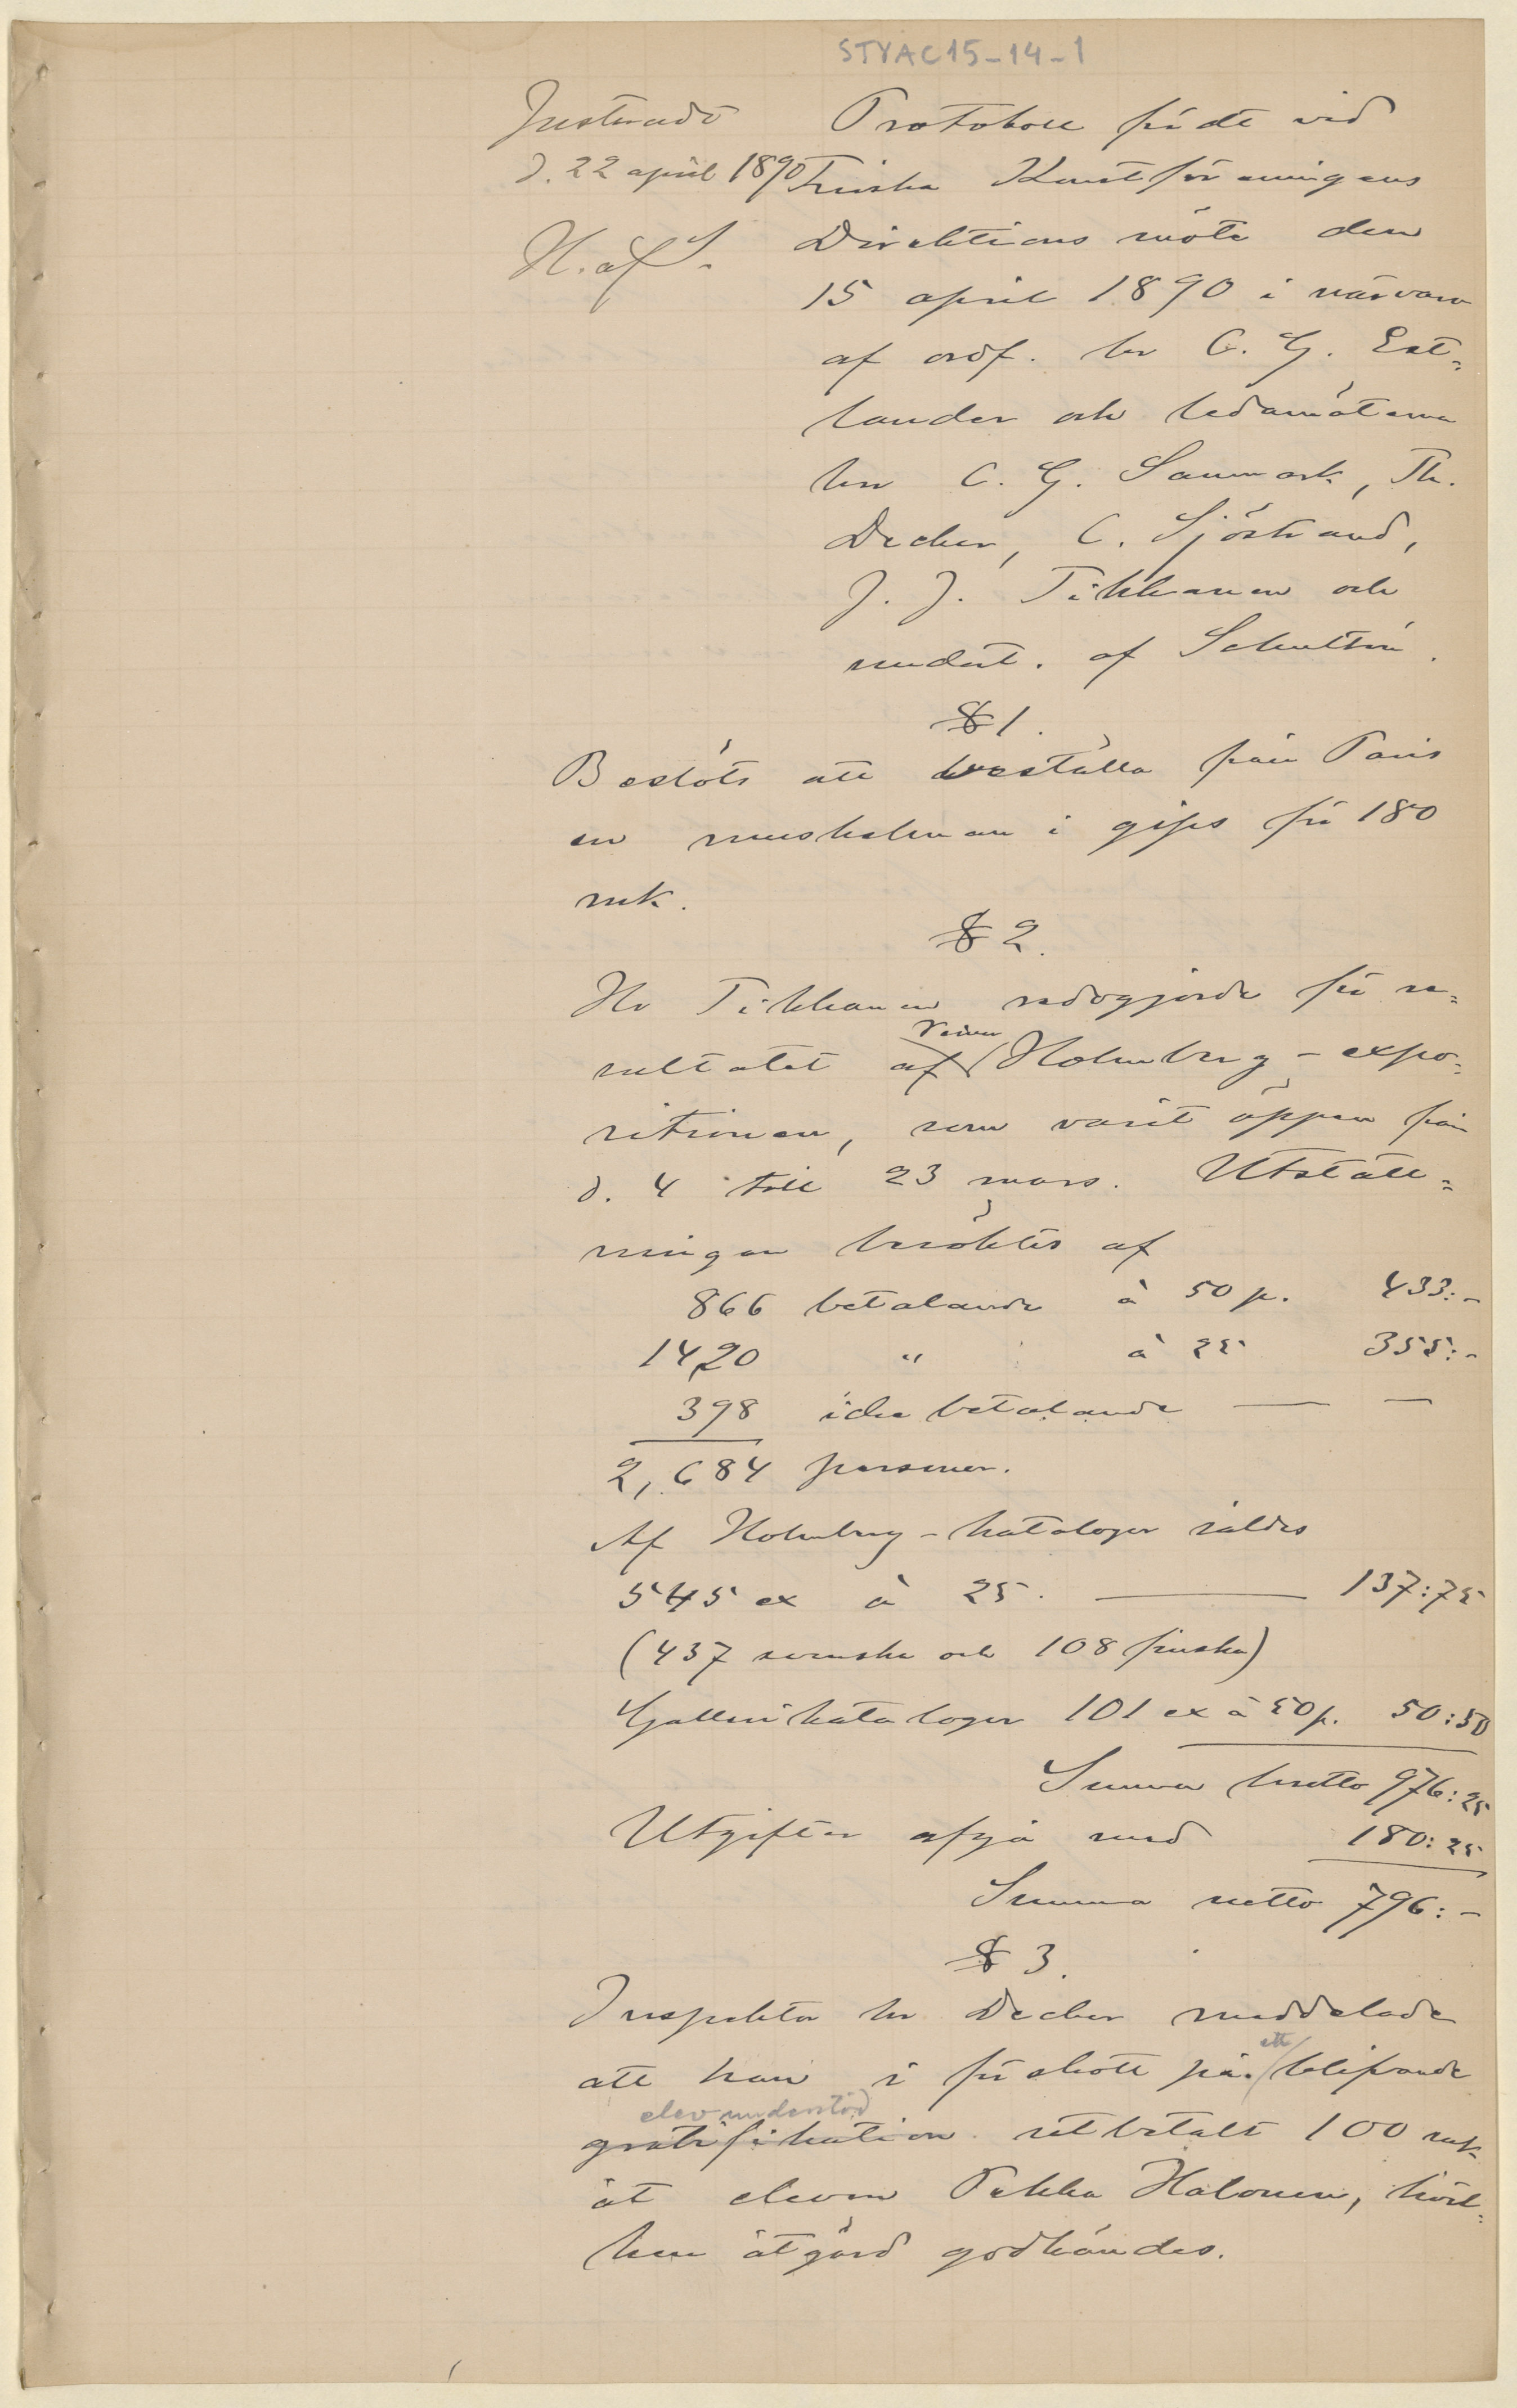 STYAC15-14-1
Justerade
d. 22 april 1890
H. af S.
Protokoll fördt vid
Finska Konstföreningens
Direktions möte den
15 april 1890 i närvaro
af ordf. hr C. G. Est-
lander och ledamöterna
hrr C. G. Sanmark, Th.
Decker, C. Sjöstrand,
J. J. Tikkanen och
undert. af Schultén.
§ 1.
Beslöts att beställa från Paris
en muskelman i gips för 180
mk.
§ 2.
Hr Tikkanen redogjorde för re-
sultatet af Werner Holmberg-expo-
sitionen, som varit öppen från
d. 4 till 23 mars. Utställ-
ningen besöktes af
866 betalande à 50 p. 433:-
1420 " à 25 355:-
398 icke betalande — —
2,684 personer.
Af Holmberg-kataloger såldes
545 ex à 25. — 137:75
(437 svenska och 108 finska)
Gallerikataloger 101 ex à 50 p. 50:50
Summa brutto 976:25
Utgifter afgå med 180:25
Summa netto 796:-
§ 3.
Inspektor hr Decker meddelade
att han i förskott på ett blifvande
elevunderstöd
gratifikation utbetalt 100 mk
åt eleven Pekka Halonen, hvil-
ken åtgärd godkändes.